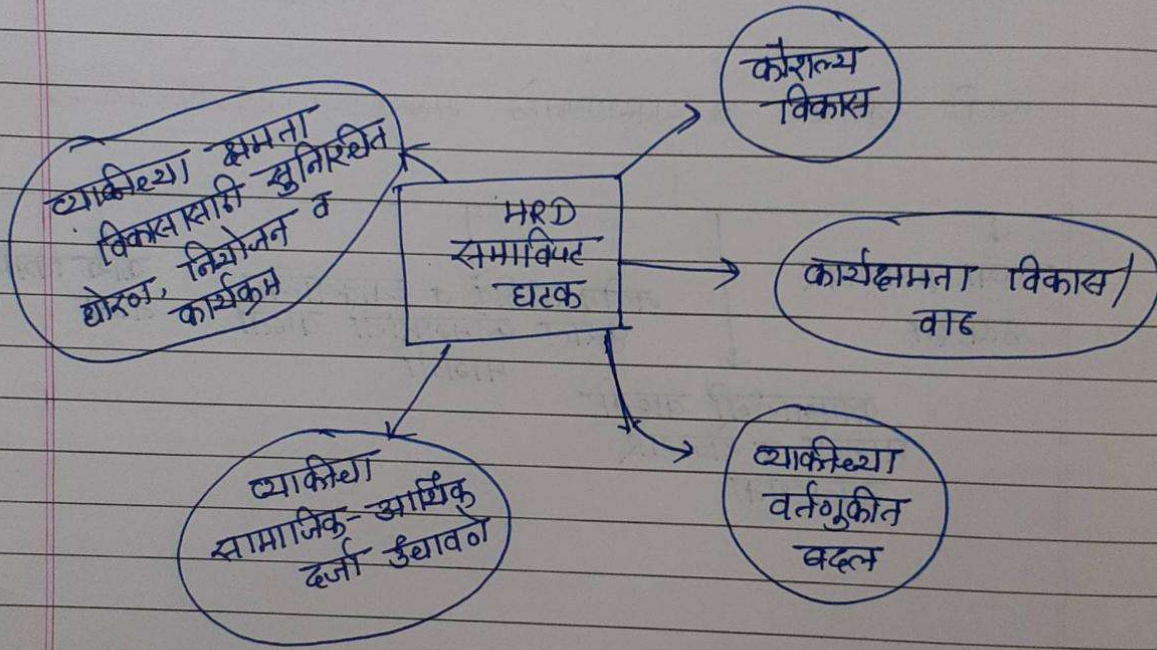 कौशल्य
विकास
व्यक्तीच्या क्षमता
विकासासाठी सुनिश्चित
धोरण, नियोजन व
कार्यक्रम
HRD
समाविष्ट
घटक
कार्यक्षमता विकास/
वाढ
व्यक्तीचा
सामाजिक-आर्थिक
दर्जा उंचावणे
व्यक्तीच्या
वर्तणुकीत
बदल